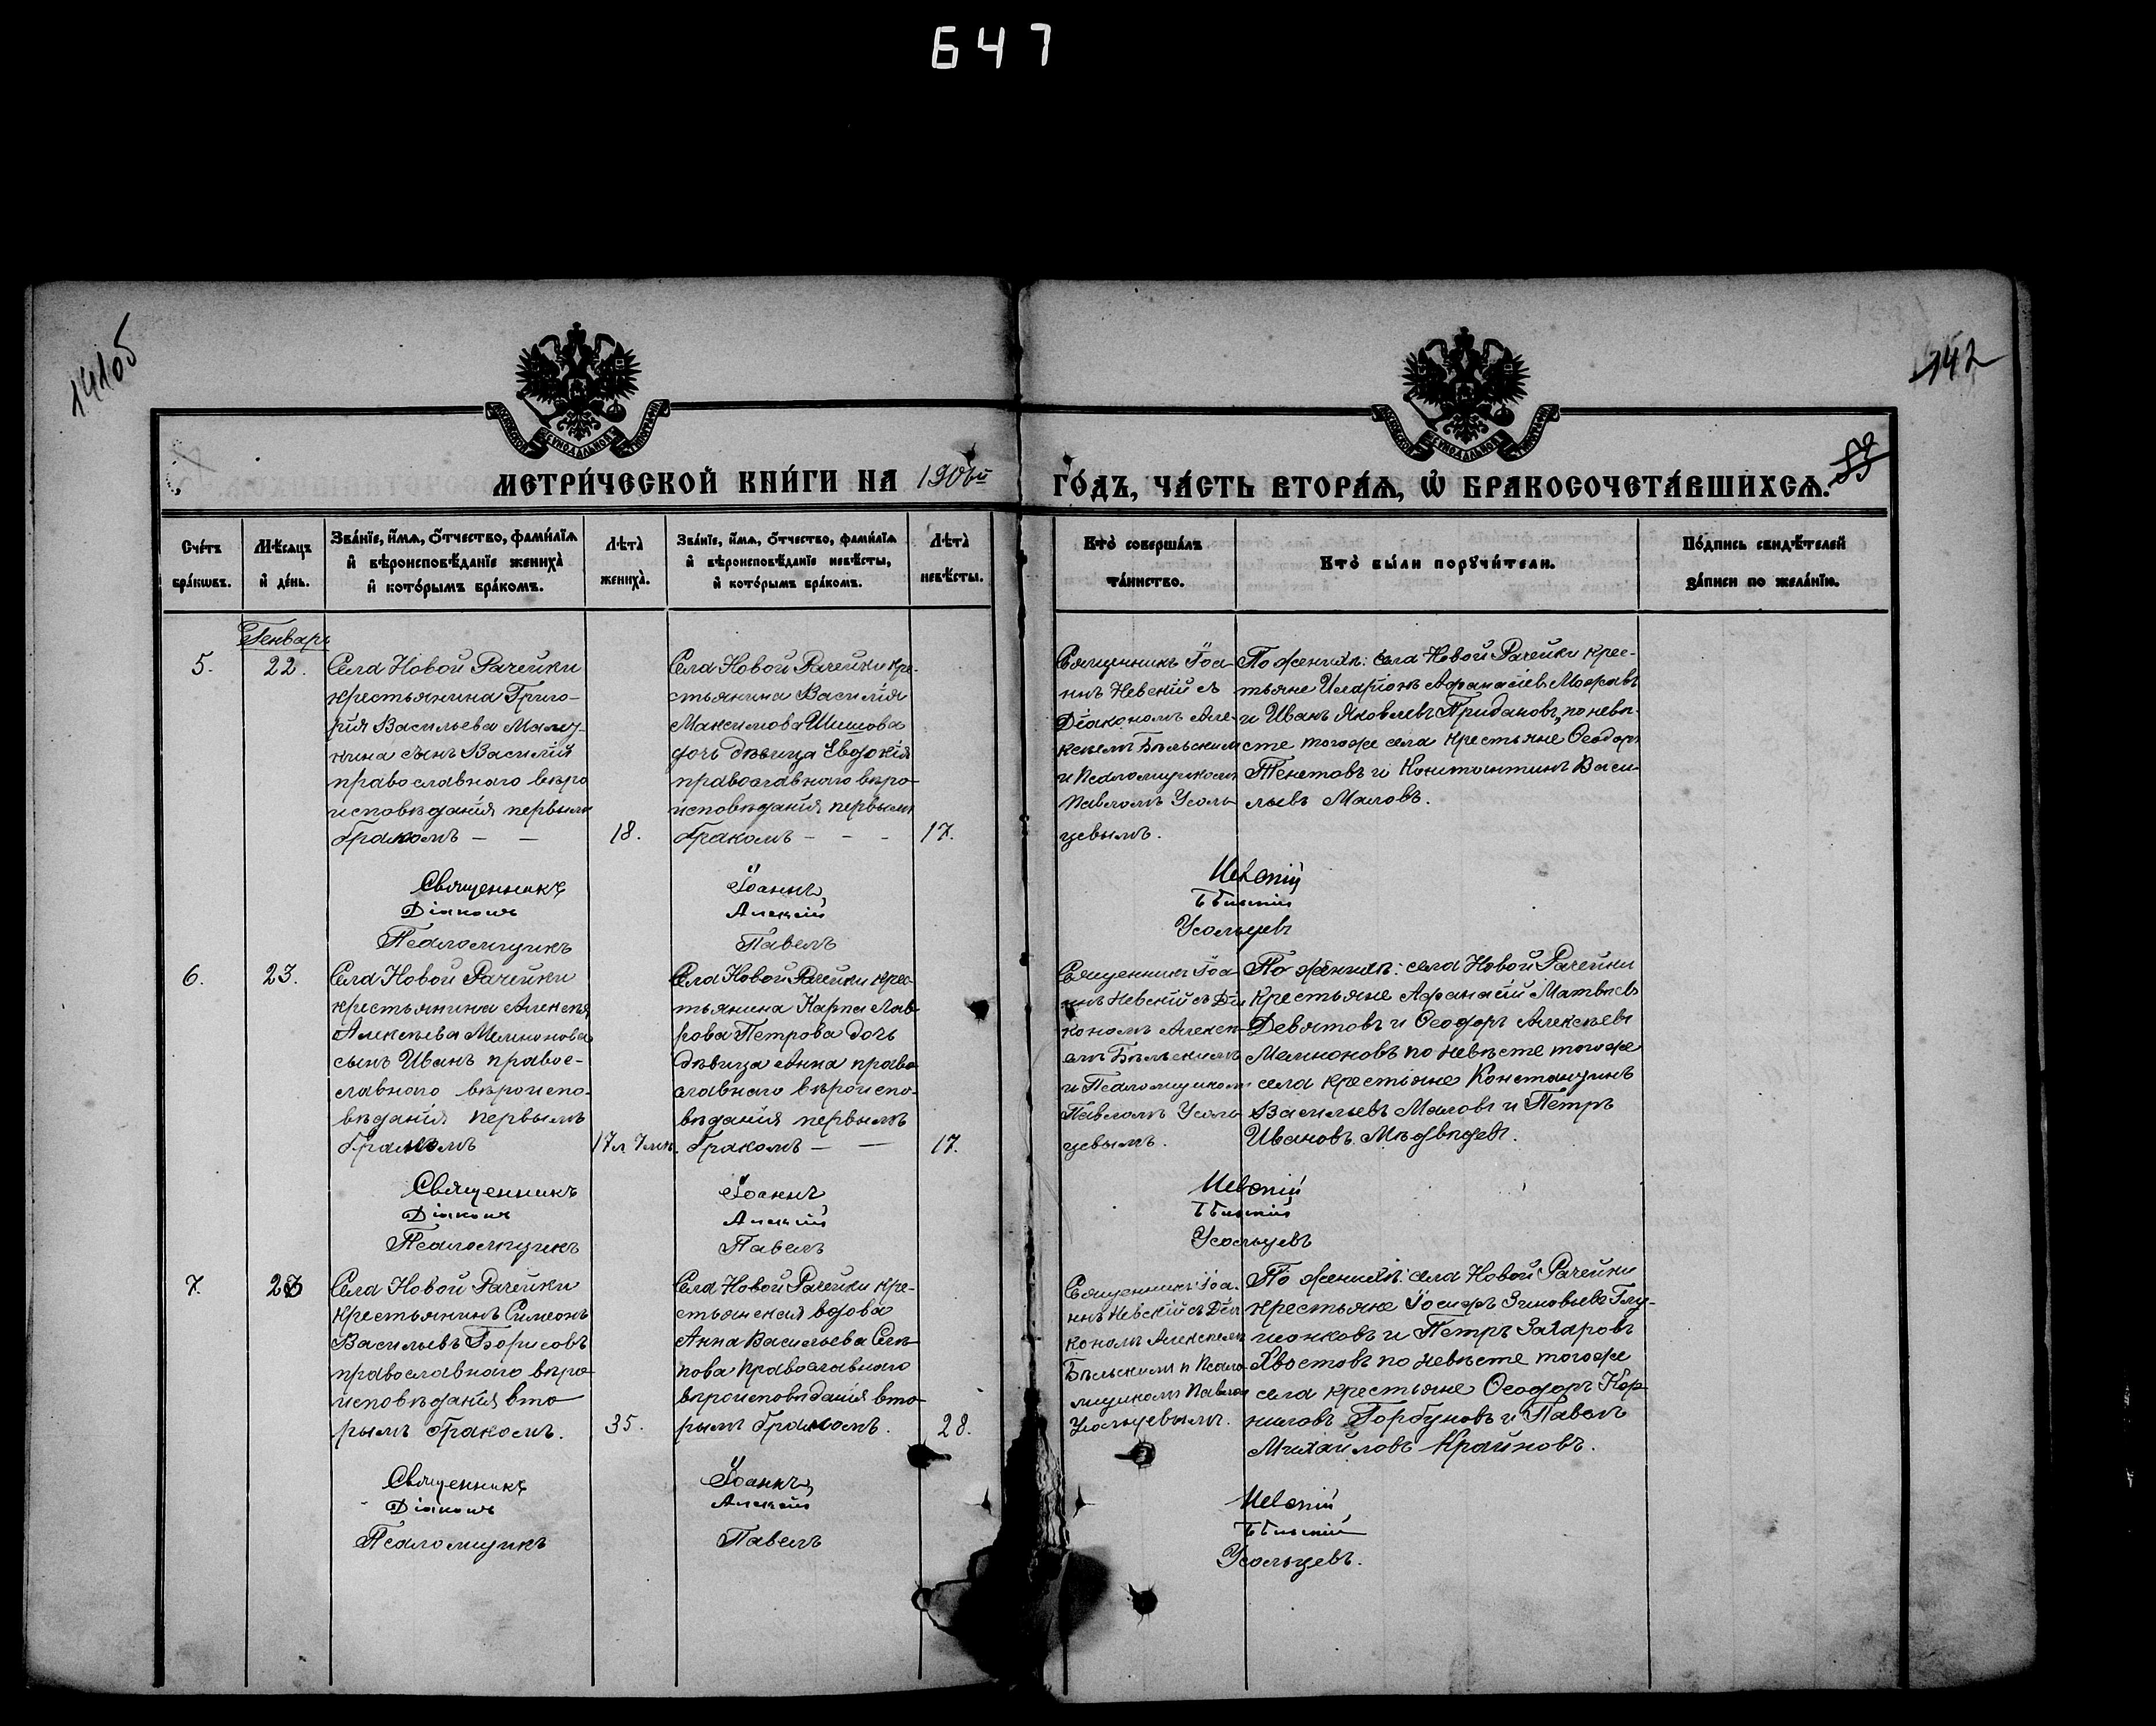 647
141об
142
МЕТРИ́ЧЕСКОЙ КНИ́ГИ НА 1906й ГО́ДЪ, ЧА́СТЬ ВТОРА́Ѧ, Ѡ БРАКОСОЧЕТА́ВШИХСѦ.
Сче́тъ бра́кωвъ.
Мѣ́сяцъ и де́нь.
Зва́нїе, и́мя, о́тчество, фами́лїя
и вѣроисповѣ́данїе жениха̀
и кото́рымъ бра́комъ.
Лѣта̀ жениха̀.
Зва́нїе, и́мя, о́тчество, фами́лїя
и вѣроисповѣ́данїе невѣ́сты,
и кото́рымъ бра́комъ.
Лѣта̀ невѣ́сты.
Кто̀ соверша́лъ та́инство.
Кто̀ бы́ли порꙋчи́тели.
По́дпись свидѣ́телей за́писи по жела́нїю.
Генварь
5.
22.
Села Новой Рачейки
крестьянина Григо-
рія Васильева
сынъ Василій
православнаго вѣро
исповѣданія первымъ
бракомъ — —
18.
Села Новой Рачейки кре-
стьянина Василія
Максимова Шишова
дочь дѣвица Евдокія
православнаго вѣро-
исповѣданія первымъ
бракомъ - - -
17.
Священникъ Іоа-
ннъ Невскій съ
Діакономъ Але-
ксѣемъ Бѣльскимъ
и Псаломщикомъ
Павломъ Усоль-
цевымъ.
По женихѣ: села Новой Рачейки крес-
тьяне Иларіонъ Афанасіевъ
и Иванъ Яковлевъ Придановъ, по невѣ-
сте тогоже села крестьяне Ѳеодоръ
Тенетовъ и Константинъ Васи-
льевъ Маловъ.
Священникъ Іоаннъ Невскій
Діаконъ Алексій Бѣльскій
Псаломщикъ Павелъ Усольцевъ
6.
23.
Села Новой Рачейки
крестьянина Алексѣя
Алексѣева Мамонова
сынъ Иванъ правос-
лавнаго вѣроиспо-
вѣданія первымъ
бракомъ
17 л 7 мѣ.
Села Новой Рачейки крес-
тьянина Карпа Лав-
рова Петрова дочь
дѣвица Анна право
славнаго вѣроиспо-
вѣданія первымъ
бракомъ — —
17.
Священникъ Іоа-
ннъ Невскій съ Діа
кономъ Алексѣ-
емъ Бѣльскимъ
и Псаломщикомъ
Павломъ Усоль-
цевымъ.
По женихѣ: села Новой Рачейки
крестьяне Афанасій Матвѣевъ
Девятовъ и Ѳеодоръ Алексѣевъ
Мамоновъ по невѣсте тогоже
села крестьяне Константинъ
Васильевъ Маловъ и Петръ
Ивановъ Мѣдвѣдевъ.
Священникъ Іоаннъ Невскій
Діаконъ Алексій Бѣльскій
Псаломщикъ Павелъ Усольцевъ
7.
23
Села Новой Рачейки
крестьянинъ Симеонъ
Васильевъ Борисовъ
православнаго вѣро-
исповѣданія вто
рымъ бракомъ.
35.
Села Новой Рачейки кре-
стьянская вдова
Анна Васильева Слѣ-
пова православнаго
вѣроисповѣданія вто
рымъ бракомъ.
28.
Священникъ Іоа-
ннъ Невскій съ Діа
кономъ Алексѣемъ
Бѣльскимъ и Псало
мщикомъ Павломъ
Усольцевымъ.
По женихѣ: села Новой Рачейки
крестьяне Іосифъ Зиновьевъ
и Петръ Захаровъ
Хвостовъ по невѣсте тогоже
села крестьяне Ѳеодоръ Кор-
ниловъ Горбуновъ и Павелъ
Михайловъ Крайновъ.
Священникъ Іоаннъ Невскій
Діаконъ Алексій Бѣльскій
Псаломщикъ Павелъ Усольцевъ.